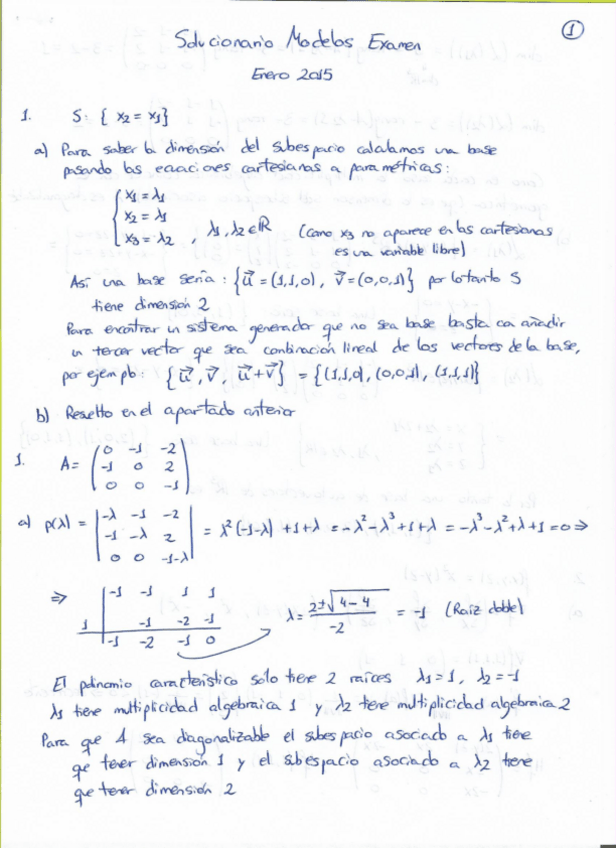 1
Solucionario Modelos Examen
Enero 2015
1. S: { x₂ = x₁}
a) Para saber la dimensión del subespacio calculamos una base
pasando las ecuaciones cartesianas a paramétricas:
{ x₁ = λ₁
x₂ = λ₁
x₃ = λ₂ , λ₁, λ₂ ∈ ℝ (Como x₃ no aparece en las cartesianas
es una variable libre)
Así una base sería: {u⃗ = (1,1,0), v⃗ = (0,0,1)} por lo tanto S
tiene dimensión 2
Para encontrar un sistema generador que no sea base basta con añadir
un tercer vector que sea combinación lineal de los vectores de la base,
por ejemplo: {u⃗, v⃗, u⃗+v⃗} = {(1,1,0), (0,0,1), (1,1,1)}
b) Resuelto en el apartado anterior
1. A = ( 0 -1 -2
-1 0 2
0 0 -1 )
a) p(λ) = | -λ -1 -2
-1 -λ 2
0 0 -1-λ | = λ²(-1-λ) + 1+λ = -λ²-λ³+1+λ = -λ³-λ²+λ+1 = 0 ⇒
⇒ | -1 -1 1 1
1 | -1 -2 -1
-1 -2 -1 0
λ = (2±√(4-4))/(-2) = -1 (Raíz doble)
El polinomio característico sólo tiene 2 raíces λ₁ = 1, λ₂ = -1
λ₁ tiene multiplicidad algebraica 1 y λ₂ tiene multiplicidad algebraica 2
Para que A sea diagonalizable el subespacio asociado a λ₁ tiene
que tener dimensión 1 y el subespacio asociado a λ₂ tiene
que tener dimensión 2